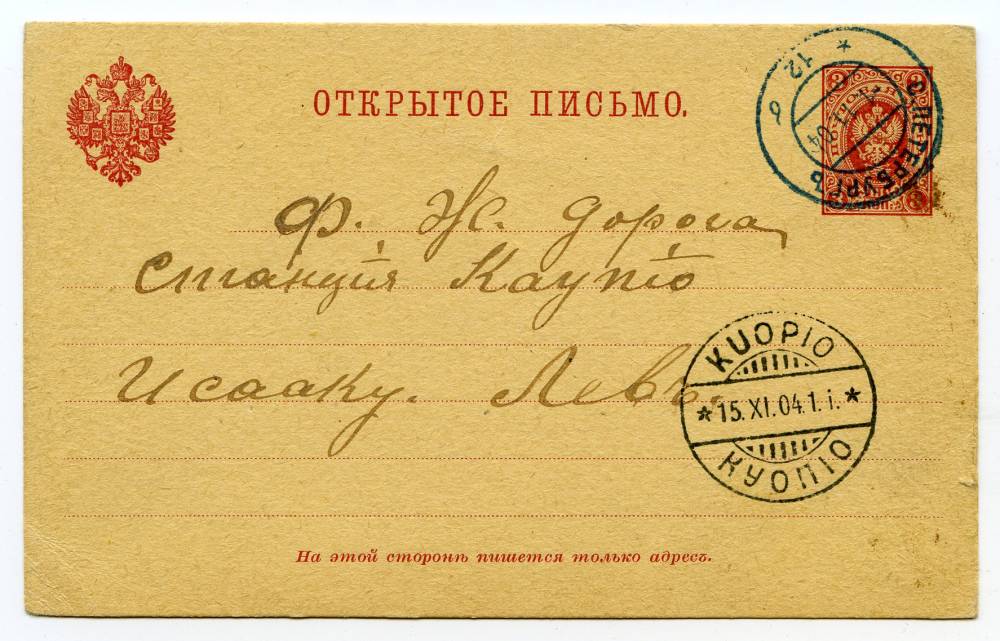 ОТКРЫТОЕ ПИСЬМО.
С.ПЕТЕРБУРГЪ
12
6
Ф. Ж. Дорога
Станція Каупіо
Исааку. Левъ.
KUOPIO
*15.XI.04.1.i.*
КУОПІО
На этой сторонѣ пишется только адресъ.